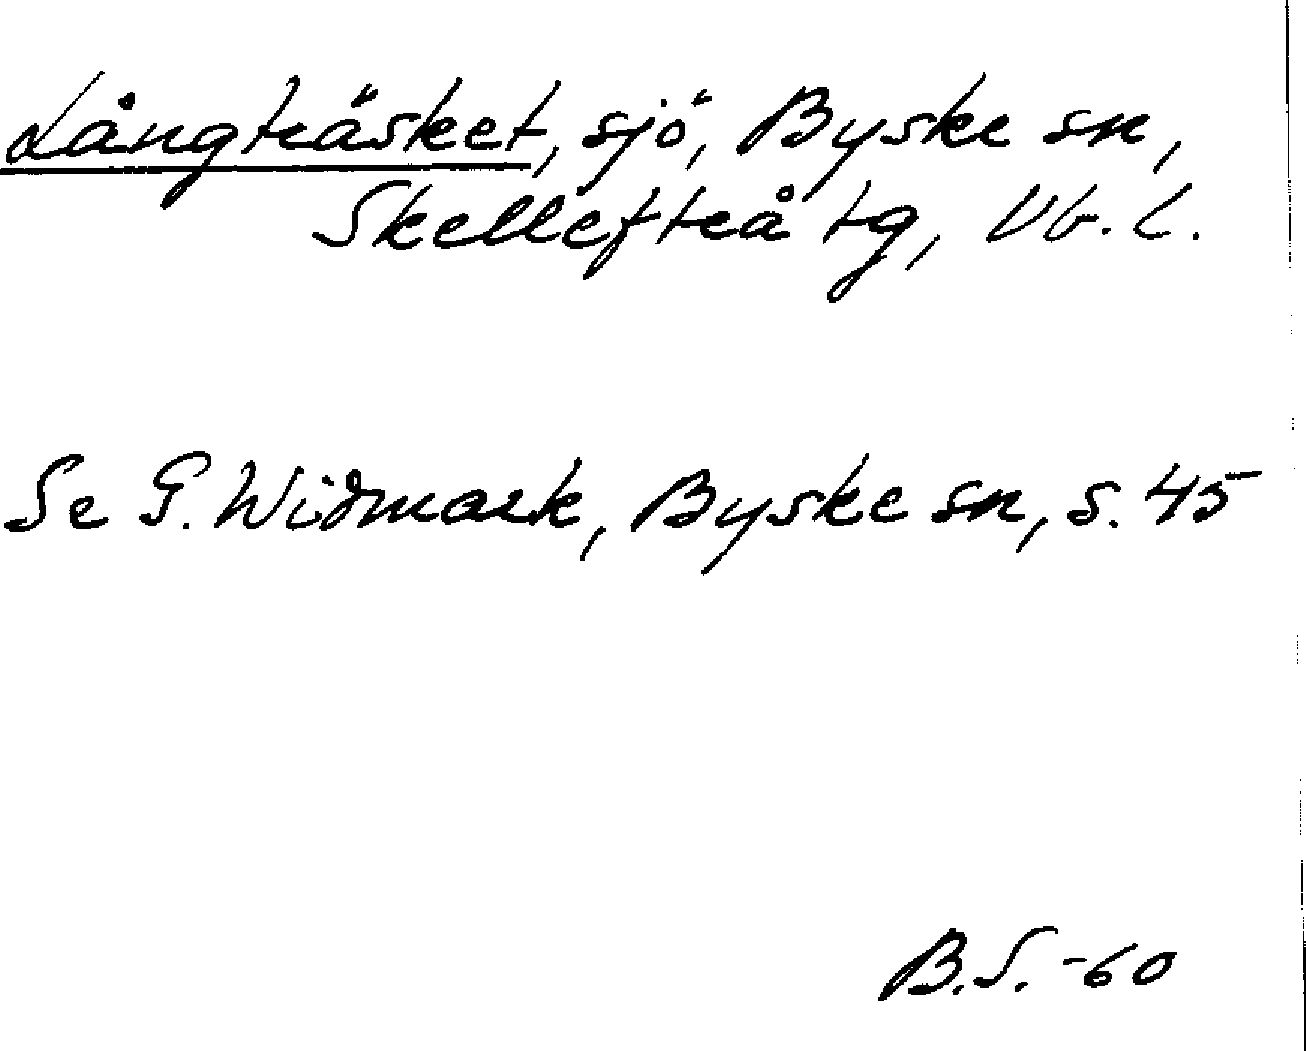 Långträsket, sjö, Byske sn,
Skellefteå tg, Vb. l.
Se G. Widmark, Byske sn, s. 45
B.S. -60